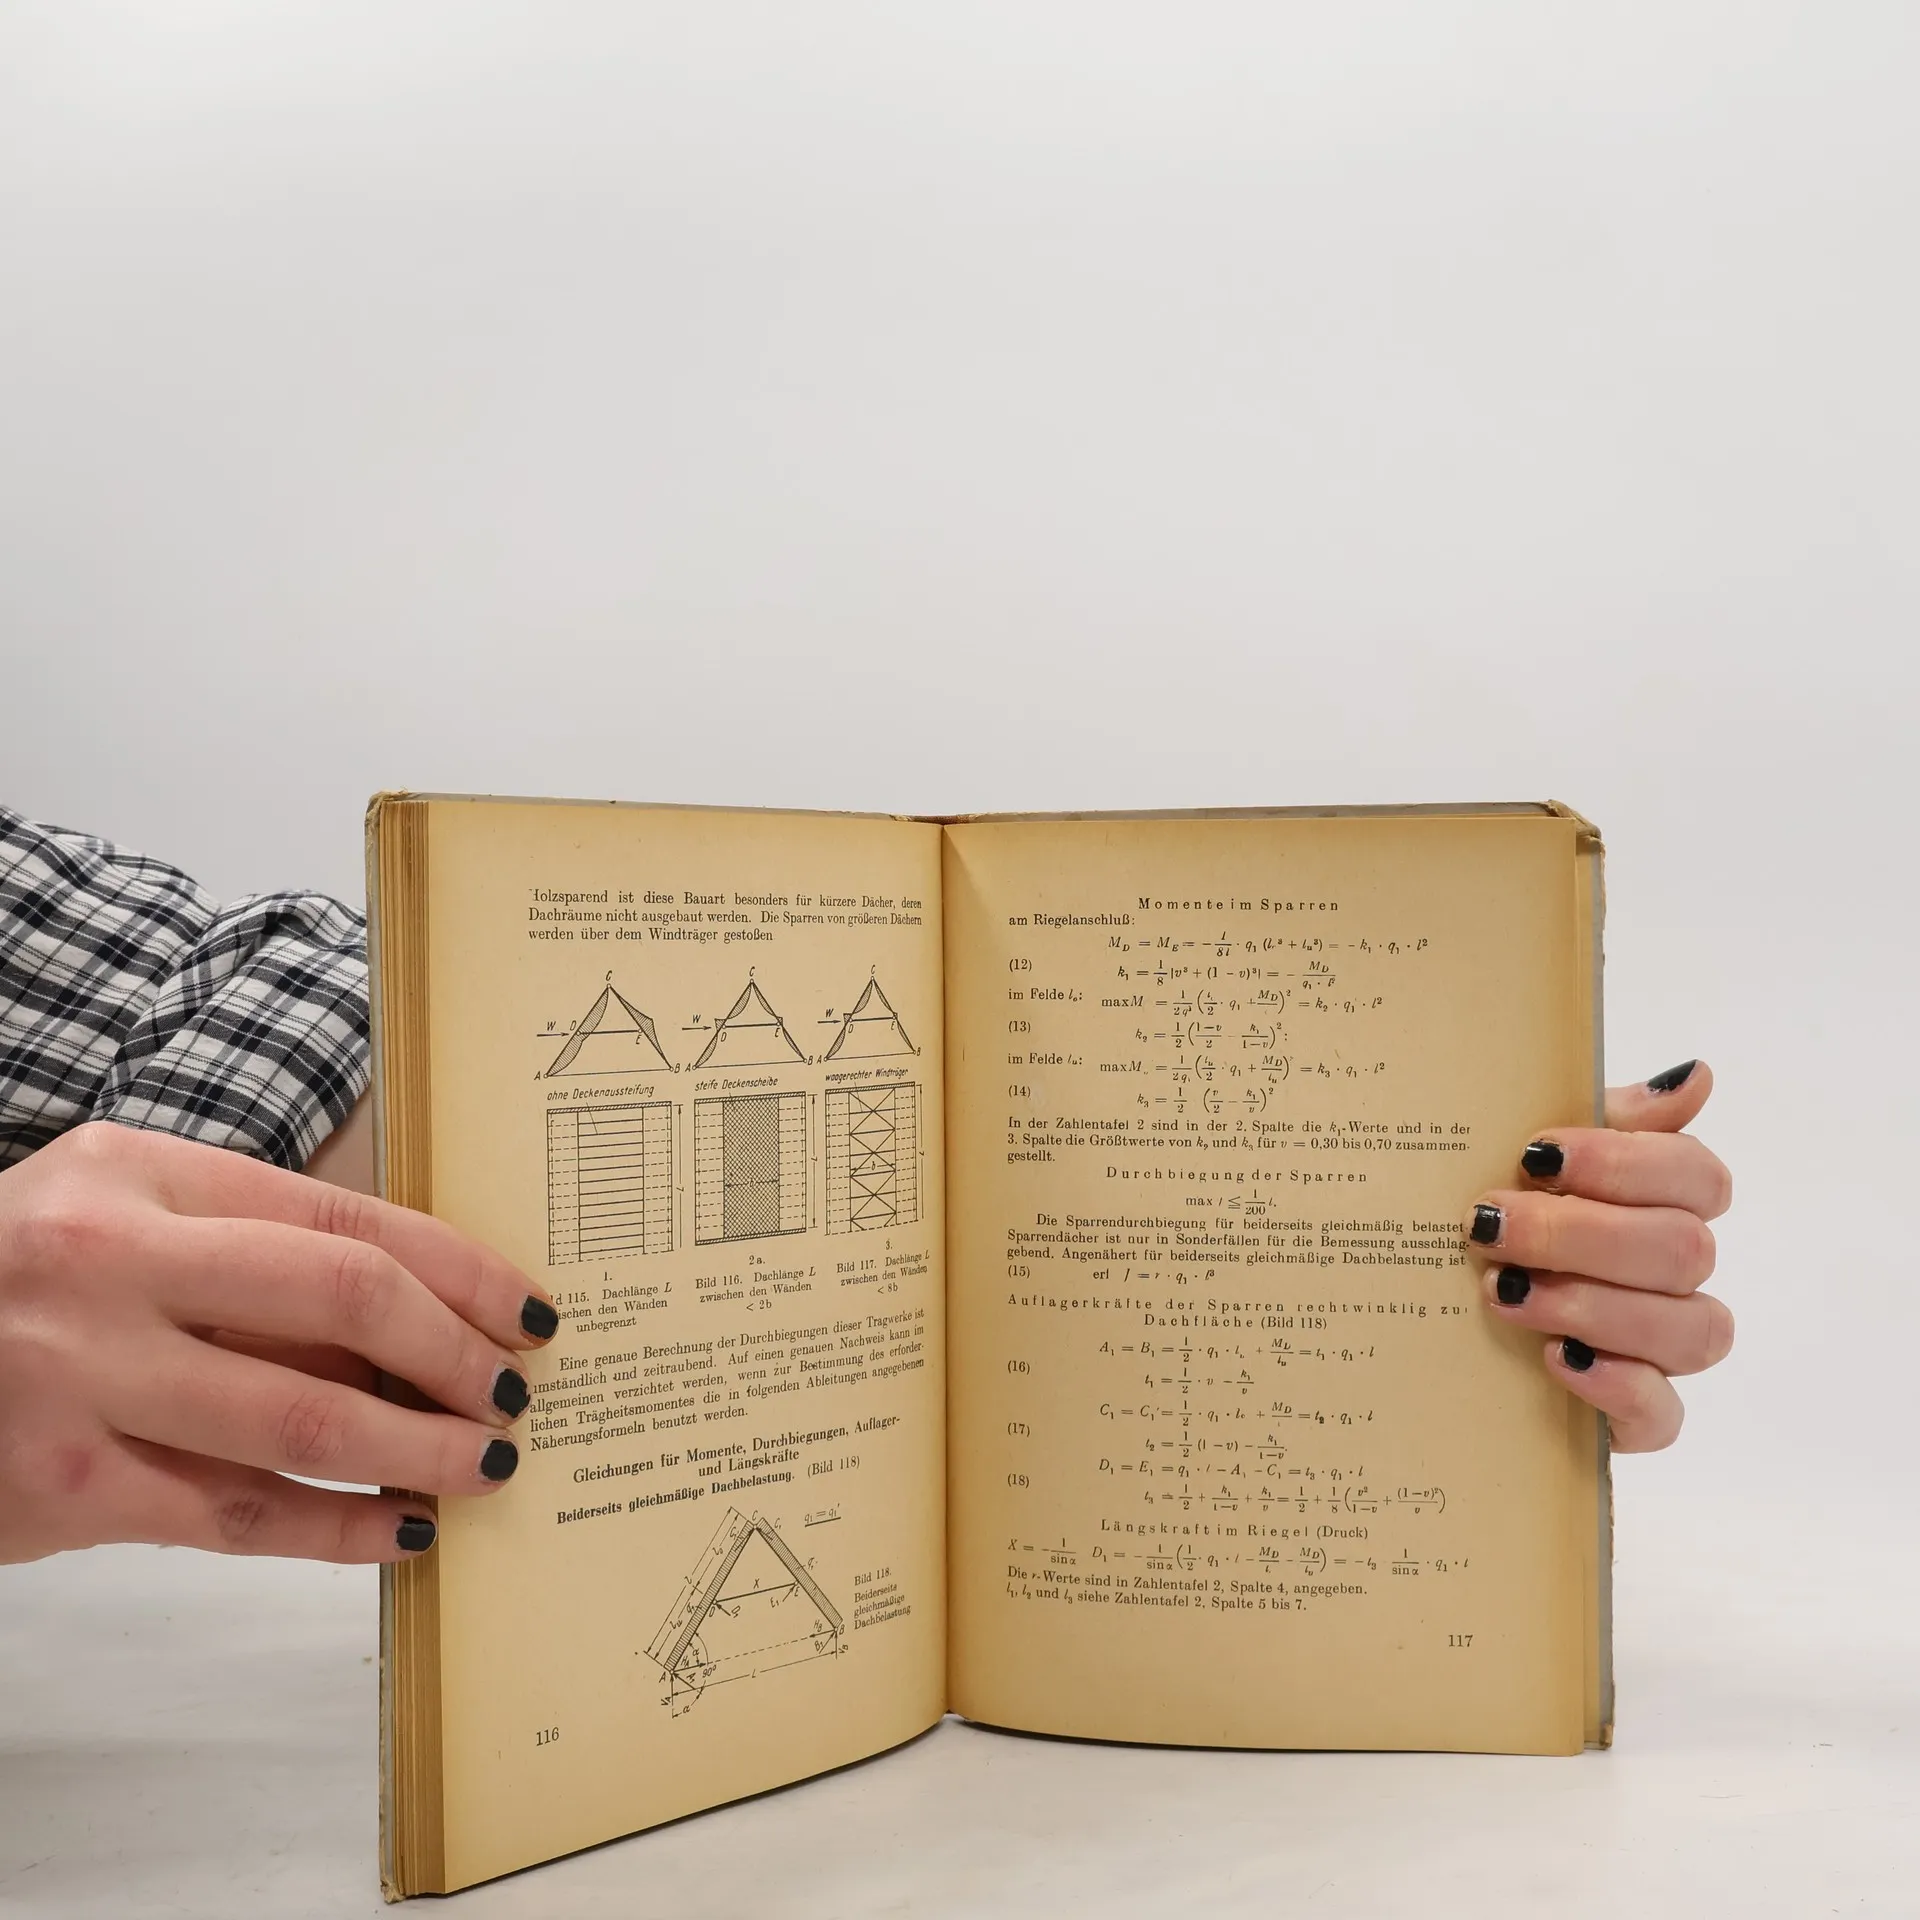 Holzsparend ist diese Bauart besonders für kürzere Dächer, deren
Dachräume nicht ausgebaut werden. Die Sparren von größeren Dächern
werden über dem Windträger gestoßen
C C C
W D E A B
W D E A B
W D E A B
ohne Deckenaussteifung
steife Deckenscheibe
waagerechter Windträger
1.
2a.
3.
115. Dachlänge L
zwischen den Wänden
unbegrenzt
Bild 116. Dachlänge L
zwischen den Wänden
< 2b
Bild 117. Dachlänge L
zwischen den Wänden
< 8b
Eine genaue Berechnung der Durchbiegungen dieser Tragwerke ist
umständlich und zeitraubend. Auf einen genauen Nachweis kann im
allgemeinen verzichtet werden, wenn zur Bestimmung des erforder-
lichen Trägheitsmomentes die in folgenden Ableitungen angegebenen
Näherungsformeln benutzt werden.
Gleichungen für Momente, Durchbiegungen, Auflager-
und Längskräfte
Beiderseits gleichmäßige Dachbelastung. (Bild 118)
q₁ = q₁'
Bild 118.
Beiderseits
gleichmäßige
Dachbelastung
116
Momente im Sparren
am Riegelanschluß:
M_D = M_E = − 1/8l · q₁ (lₒ³ + lᵤ³) = − k₁ · q₁ · l²
(12) k₁ = 1/8 [v³ + (1 − v)³] = − M_D / q₁ · l²
im Felde lₒ: max M = 1/2q₁ (lₒ/2 · q₁ + M_D/lₒ)² = k₂ · q₁ · l²
(13) k₂ = 1/2 ((1−v)/2 − k₁/(1−v))²;
im Felde lᵤ: max Mᵤ = 1/2q₁ (lᵤ/2 · q₁ + M_D/lᵤ)² = k₃ · q₁ · l²
(14) k₃ = 1/2 (v/2 − k₁/v)²
In der Zahlentafel 2 sind in der 2. Spalte die k₁-Werte und in der
3. Spalte die Größtwerte von k₂ und k₃ für v = 0,30 bis 0,70 zusammen-
gestellt.
Durchbiegung der Sparren
max f ≦ 1/200 l.
Die Sparrendurchbiegung für beiderseits gleichmäßig belastet
Sparrendächer ist nur in Sonderfällen für die Bemessung ausschlag-
gebend. Angenähert für beiderseits gleichmäßige Dachbelastung ist
(15) erf J = r · q₁ · l³
Auflagerkräfte der Sparren rechtwinklig zu
Dachfläche (Bild 118)
A₁ = B₁ = 1/2 · q₁ · lᵤ + M_D/lᵤ = t₁ · q₁ · l
(16) t₁ = 1/2 · v − k₁/v
C₁ = C₁' = 1/2 · q₁ · lₒ + M_D/lₒ = t₂ · q₁ · l
(17) t₂ = 1/2 (1 − v) − k₁/(1−v).
D₁ = E₁ = q₁ · l − A₁ − C₁ = t₃ · q₁ · l
(18) t₃ = 1/2 + k₁/(1−v) + k₁/v = 1/2 + 1/8 (v²/(1−v) + (1−v)²/v)
Längskraft im Riegel (Druck)
X = − 1/sin α D₁ = − 1/sin α (1/2 · q₁ · l − M_D/lₒ − M_D/lᵤ) = − t₃ 1/sin α · q₁ · l
Die r-Werte sind in Zahlentafel 2, Spalte 4, angegeben.
t₁, t₂ und t₃ siehe Zahlentafel 2, Spalte 5 bis 7.
117